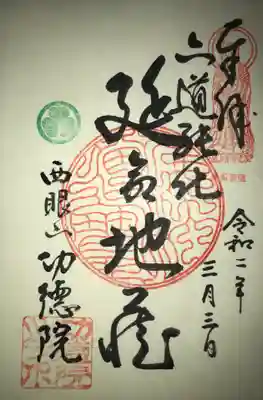 奉拝
六道能化
延命地蔵
令和二年
三月三日
西眼山 功德院